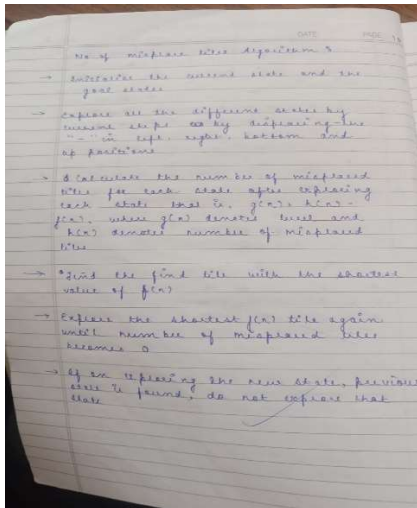 DATE PAGE
No of misplace tiles Algorithm :
→ Initialise the current state and the
goal states
→ Explore all the different states by
steps by displacing the
"-" in left, right, bottom and
up positions
→ Calculate the number of misplaced
tiles for each state after exploring
each state that is, g(n) + h(n) =
f(n), where g(n) denotes level and
h(n) denotes number of misplaced
tiles
→ Find the find tile with the shortest
value of f(n)
→ Explore the shortest f(n) tile again
until number of misplaced tiles
becomes 0
→ If on exploring the new state, previous
state is found, do not explore that
state